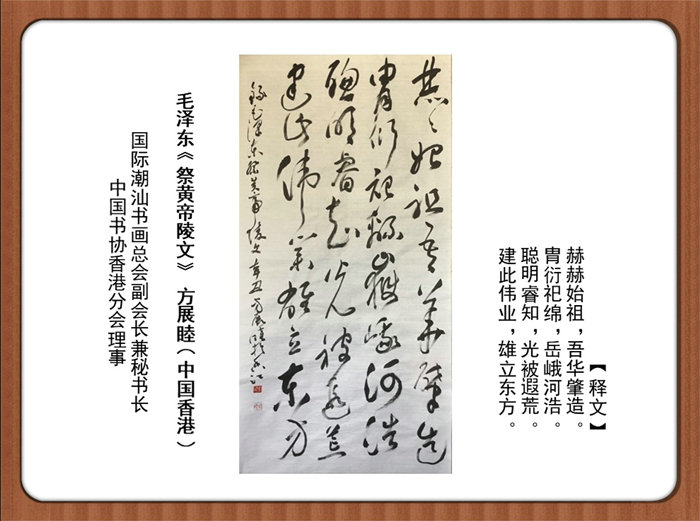 【释文】
赫赫始祖，吾华肇造。
胄衍祀绵，岳峨河浩。
聪明睿知，光被遐荒。
建此伟业，雄立东方。
赫々始祖吾华肇造
胄衍祀绵岳峨河浩
聪明睿知光被遐荒
建此伟业雄立东方
录毛泽东祭黄帝陵文辛丑方展睦于香江
毛泽东《祭黄帝陵文》 方展睦（中国香港）
国际潮汕书画总会副会长兼秘书长
中国书协香港分会理事